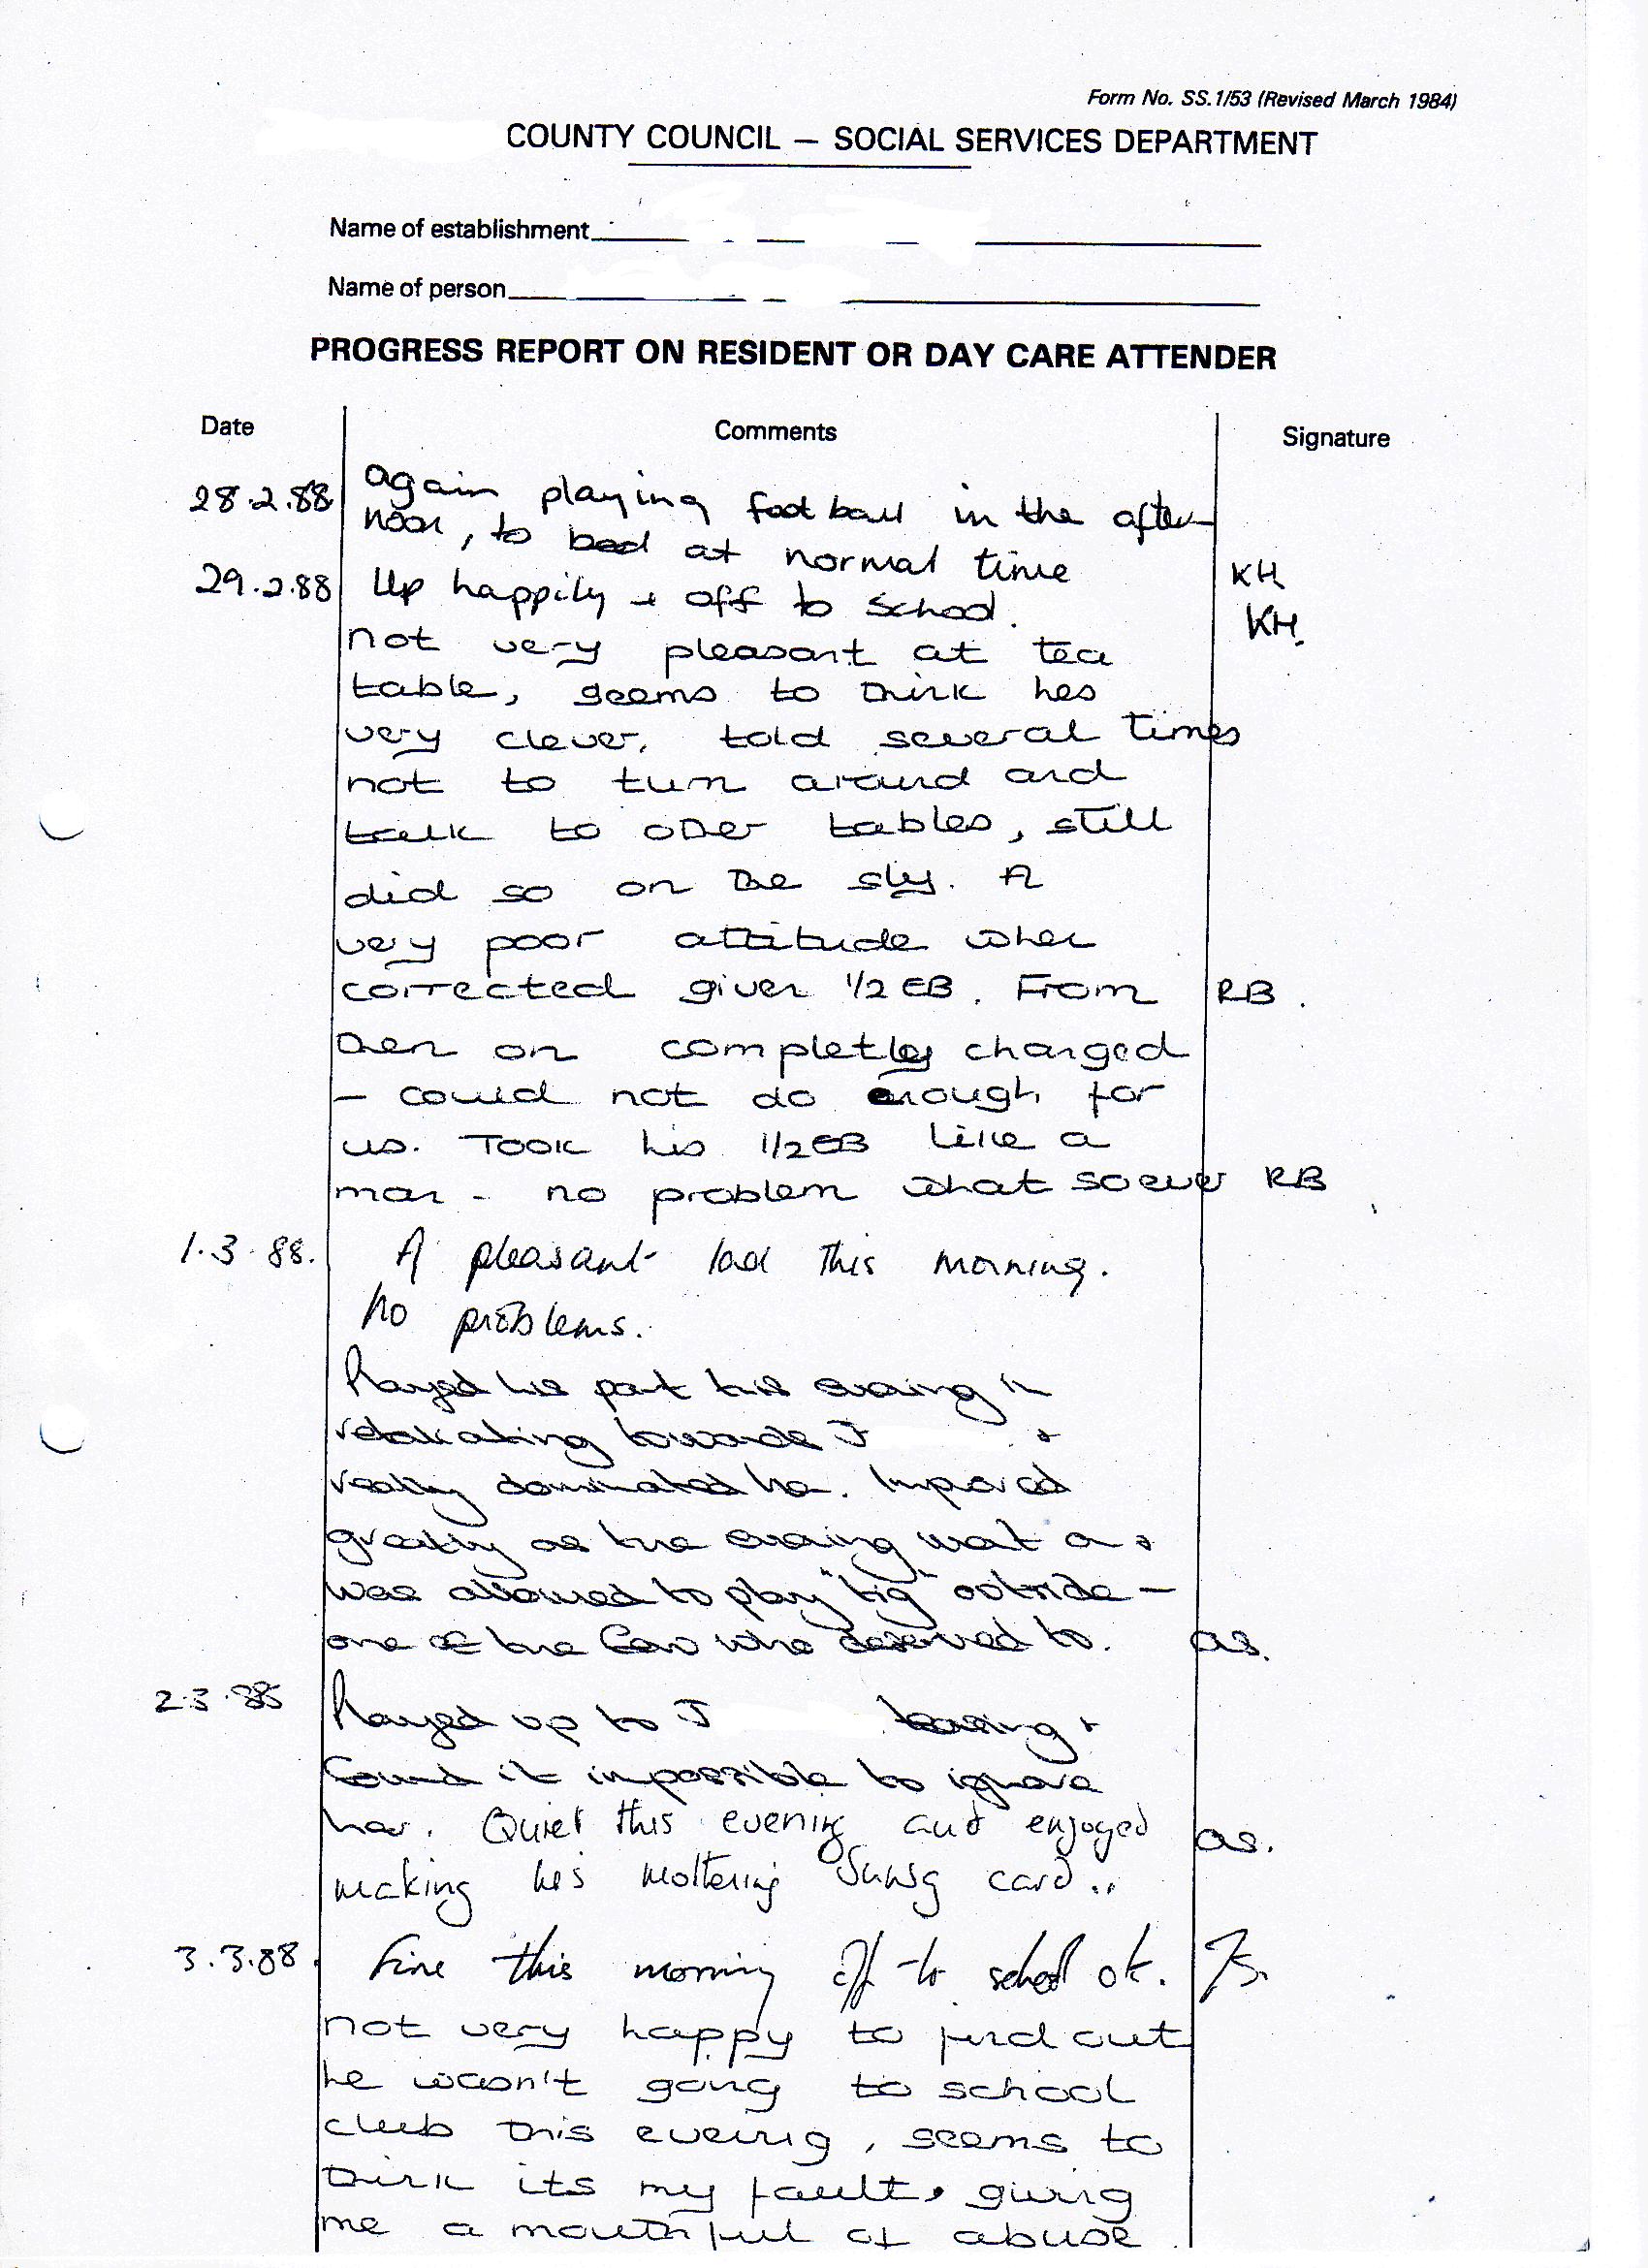 Form No. SS.1/53 (Revised March 1984)
COUNTY COUNCIL — SOCIAL SERVICES DEPARTMENT
Name of establishment
Name of person
PROGRESS REPORT ON RESIDENT OR DAY CARE ATTENDER
Date Comments Signature
28.2.88 again playing football in the after-
noon, to bed at normal time KH
29.2.88 Up happily + off to school. KH.
not very pleasant at tea
table, seems to think hes
very clever, told several times
not to turn around and
talk to other tables, still
did so on the sly. A
very poor attitude when
corrected given 1/2 EB. From RB.
then on completly changed
– could not do enough for
us. Took his 1/2 EB like a
man - no problem what soever RB
1.3.88. A pleasant lad this morning.
No problems.
Played his part this evening in
retaliating towards J +
really dominated her. Improved
greatly as the evening went on +
was allowed to play "tig" outside —
one of the few who deserved to. as.
2.3.88 Played up to J teasing +
found it impossible to ignore
her. Quiet this evening and enjoyed as.
making his mothering Sunday card..
3.3.88. Fine this morning off to school ok. JS.
not very happy to find out
he wasn't going to school
club this evening, seems to
think its my fault, giving
me a mouthful of abuse.